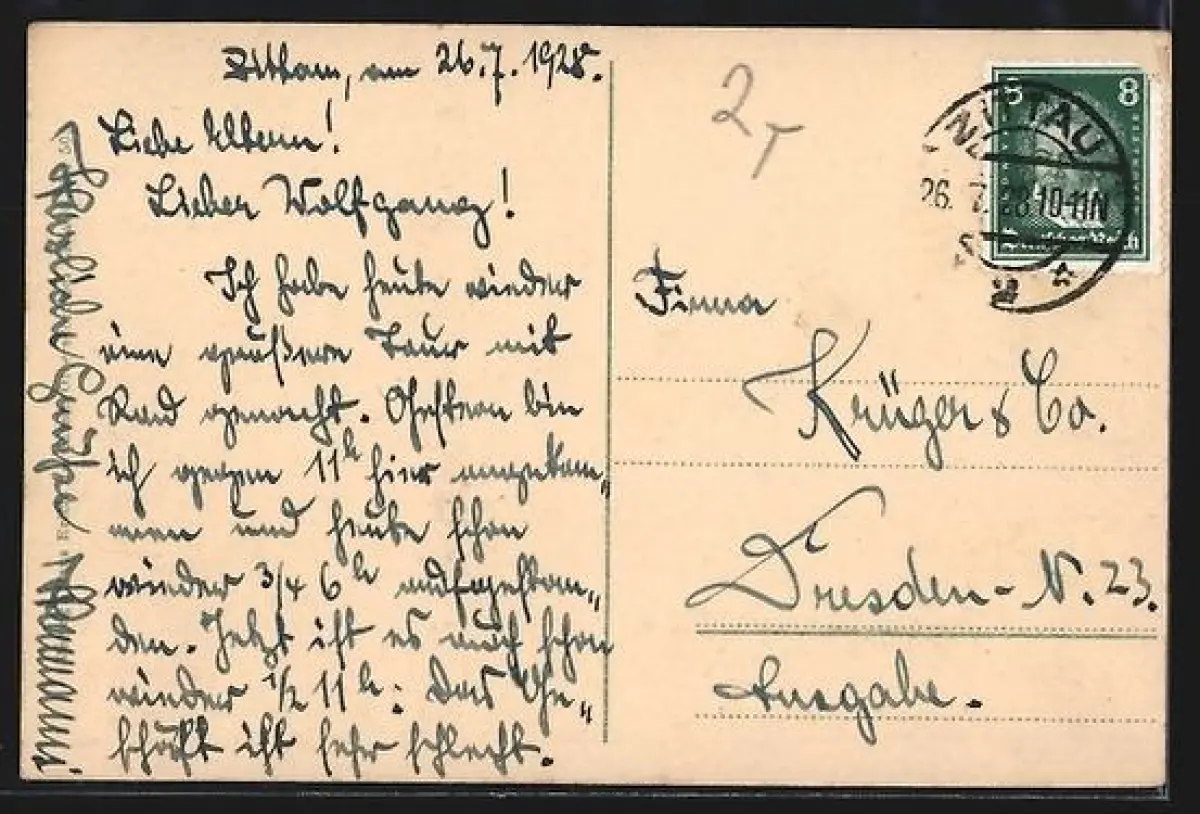 Zittau, am 26.7.1928.
Liebe Eltern!
Lieber Wolfgang!
Ich habe heute wieder
eine größere Tour mit
Rad gemacht. Gestern bin
ich gegen 11h hier angekom„
men und heute schon
wieder 3/4 6h aufgestan„
den. Jetzt ist es auch schon
wieder 1/2 11h. Das Ge„
schäft ist sehr schlecht.
Herzliche Grüße
2
ZITTAU
26. 7. 28 10-11N
8 8
Deutsches Reich
Firma
Krüger & Co.
Dresden-N. 23.
Ausgabe.